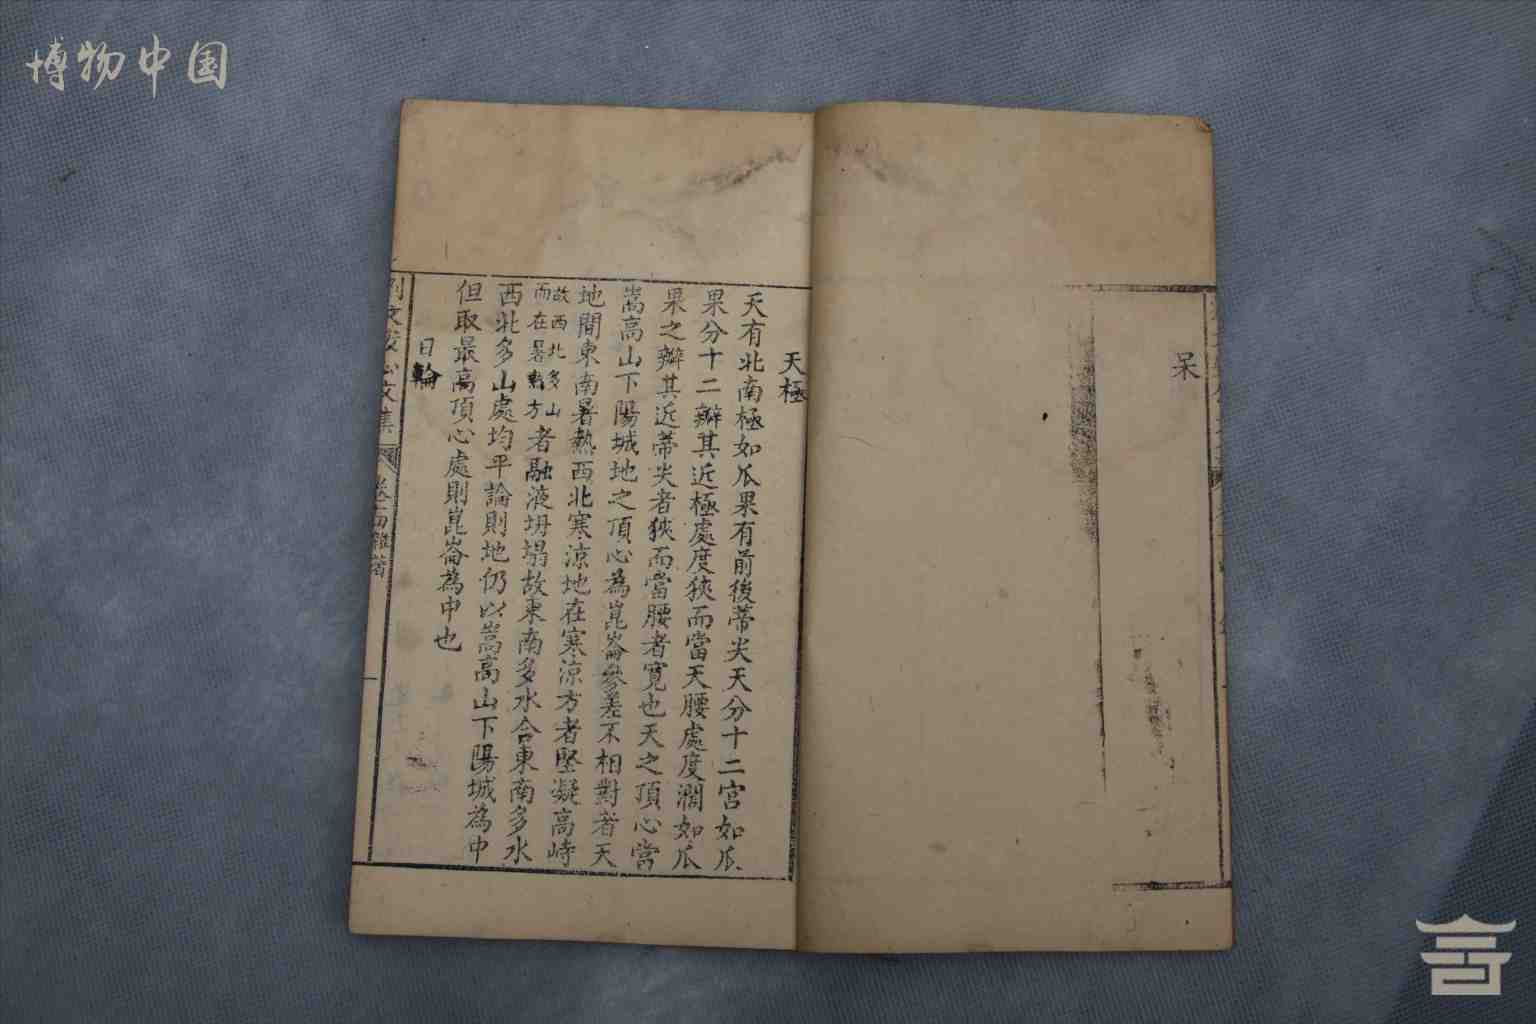 博物中国
呆
天極
天有北南極如瓜果有前後蒂尖天分十二宮如瓜
果分十二瓣其近極處度狹而當天腰處度濶如瓜
果之瓣其近蒂尖者狹而當腰者寬也天之頂心當
嵩高山下陽城地之頂心為崑崙參差不相對者天
地間東南暑熱西北寒涼地在寒涼方者堅凝高峙
故西北多山
而在暑熱方
者融液坍塌故東南多水合東南多水
西北多山處均平論則地仍以嵩高山下陽城為中
但取最高頂心處則崑崙為中也
日輪
文集
卷四雜著